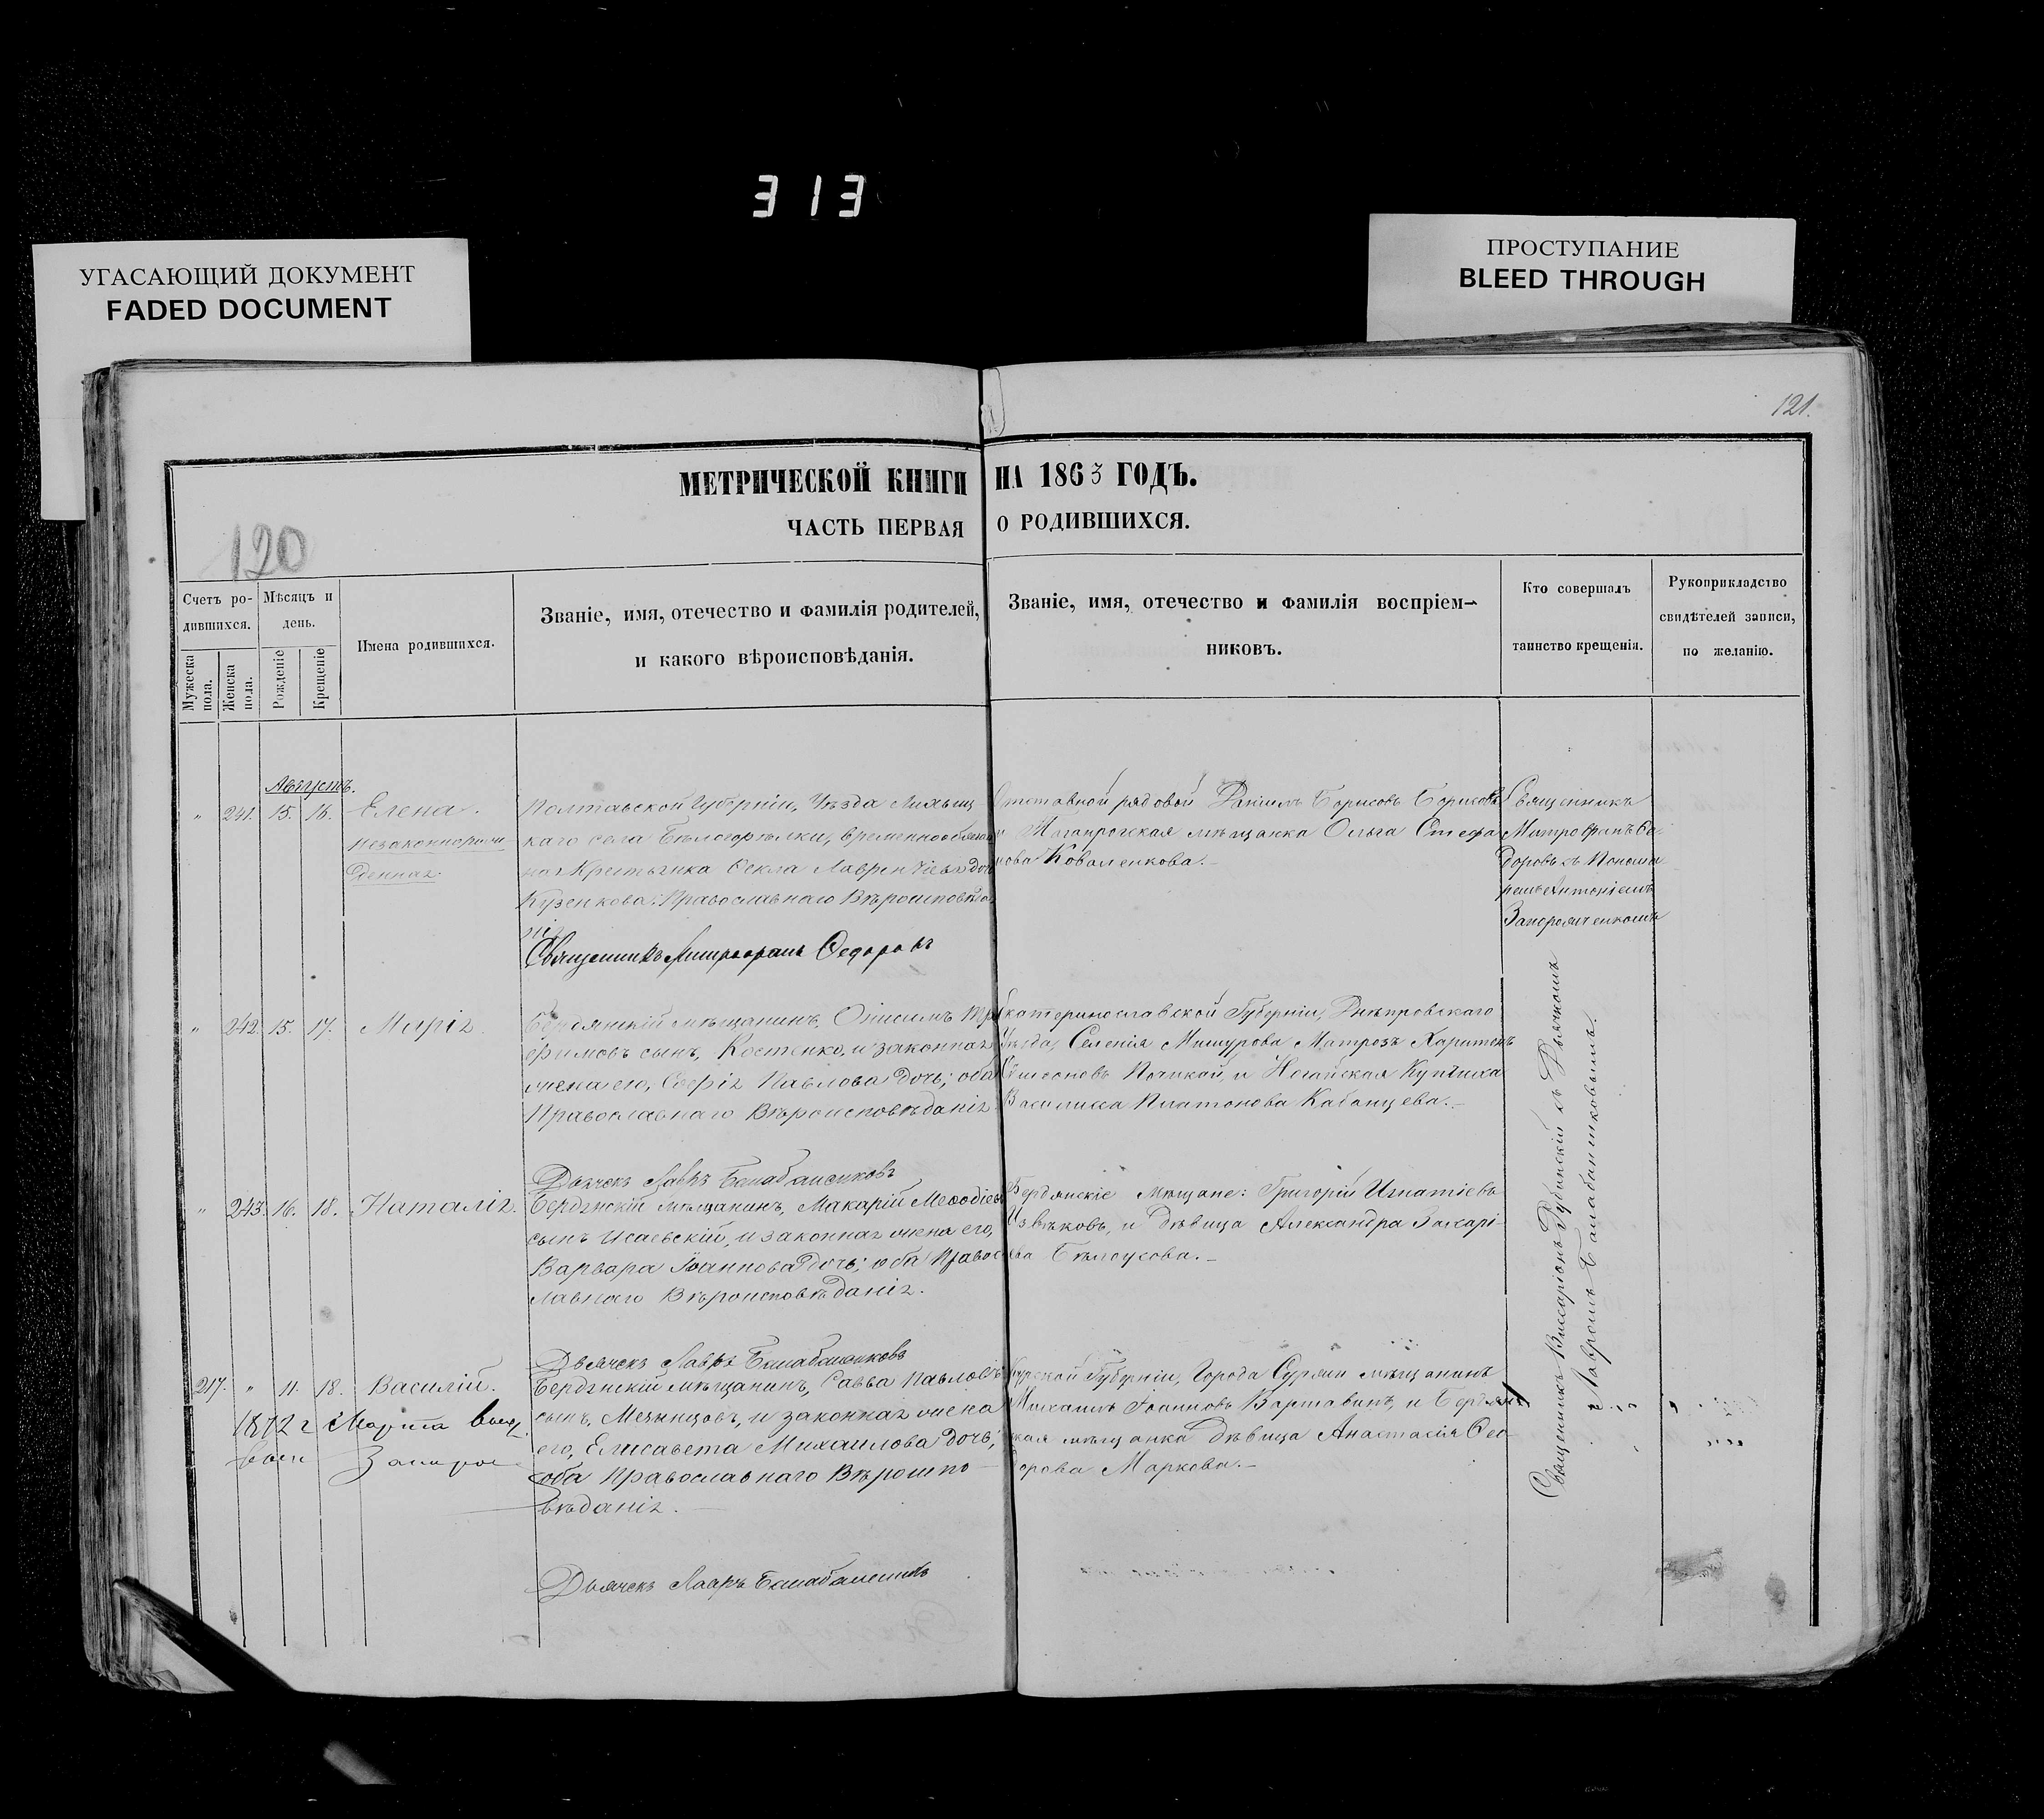 313
УГАСАЮЩИЙ ДОКУМЕНТ
FADED DOCUMENT
ПРОСТУПАНИЕ
BLEED THROUGH
121.
МЕТРИЧЕСКОЙ КНИГИ НА 1863 ГОДЪ.
ЧАСТЬ ПЕРВАЯ О РОДИВШИХСЯ.
120
Счетъ ро-
дившихся.
Мужеска
пола.
Женска
пола.
Мѣсяцъ и
день.
Рожденіе
Крещеніе
Имена родившихся.
Званіе, имя, отечество и фамилія родителей,
и какого вѣроисповѣданія.
Званіе, имя, отечество и фамилія воспріем-
никовъ.
Кто совершалъ
таинство крещенія.
Рукоприкладство
свидѣтелей записи,
по желанію.
Августъ.
" 241. 15. 16. Елена.
незаконнорож
денная.
Полтавской Губерніи, Уѣзда
каго села Бѣлогорѣлки, временнообязан
ная Крестьянка Ѳекла Лаврентіева дочь
Кузенкова: Православнаго Вѣроисповѣда
нія
Священникъ Митрофанъ Ѳедоровъ
Отставной рядовой Борисовъ Борисовъ
и Таганрогская мѣщанка Ольга Стефа
нова Коваленкова.-
Священникъ
Митрофанъ Ѳе
доровъ съ Понома
ремъ Антоніемъ
Запорожченкомъ
" 242. 15. 17. Марія.
Бердянскій мѣщанинъ, Онисимъ Тро
фимовъ сынъ, Костенко, и законная
жена его, Софія Павлова дочь; оба
Православнаго Вѣроисповѣданія.
Дьячекъ Лавръ Балабашниковъ
Екатеринославской Губерніи, Днѣпровскаго
Уѣзда, Селенія Мишурова Матрозъ Харитонъ
Симеоновъ и Ногайская Купчиха
Василиса Платонова Кабанцева.-
" 243. 16. 18. Наталія.
Бердянскій мѣщанинъ, Макарій Меѳодіевъ
сынъ Исаевскій, и законная жена его,
Варвара Іоаннова дочь; оба Правос
лавнаго Вѣроисповѣданія.
Дьячекъ Лавръ Балабашниковъ
Бердянскіе Мѣщане: Григорій Игнатіевъ
Извѣковъ, и дѣвица Александра Захарі-
ева Бѣлоусова.-
Священникъ Виссаріонъ Дубинскій съ Дьячкомъ
Лавромъ Балабашниковымъ.
217. " 11. 18. Василій.
1872 г Марта
Бердянскій мѣщанинъ, Савва Павловъ
сынъ, Мечницовъ, и законная жена
его, Елисавета Михаилова дочь;
оба Православнаго Вѣроиспо
вѣданія.
Дьячекъ Лавръ Балабашниковъ
Курской Губерніи, Города Суржи мѣщанинъ
Михаилъ Іоанновъ Вартавинъ, и Бердян
ская мѣщанка дѣвица Анастасія Ѳео-
дорова Маркова.-